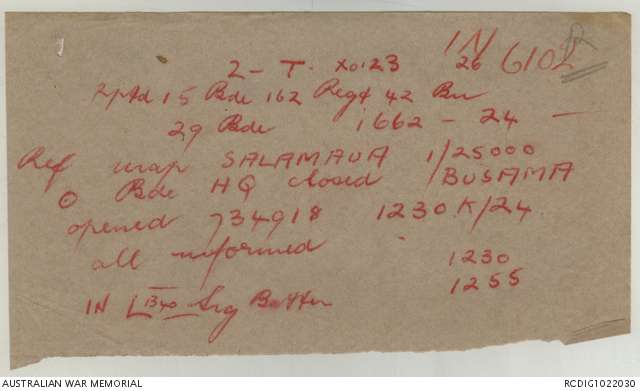 IN 6102
2 - T. X0123 26
Rptd 15 Bde 162 Regt 42 Bn
29 Bde 1662 - 24 -
Ref map SALAMAUA 1/25000
Bde HQ closed BUSAMA
opened 734918 1230K/24
all informed 1230
1255
IN 1340 Sig
AUSTRALIAN WAR MEMORIAL RCDIG1022030